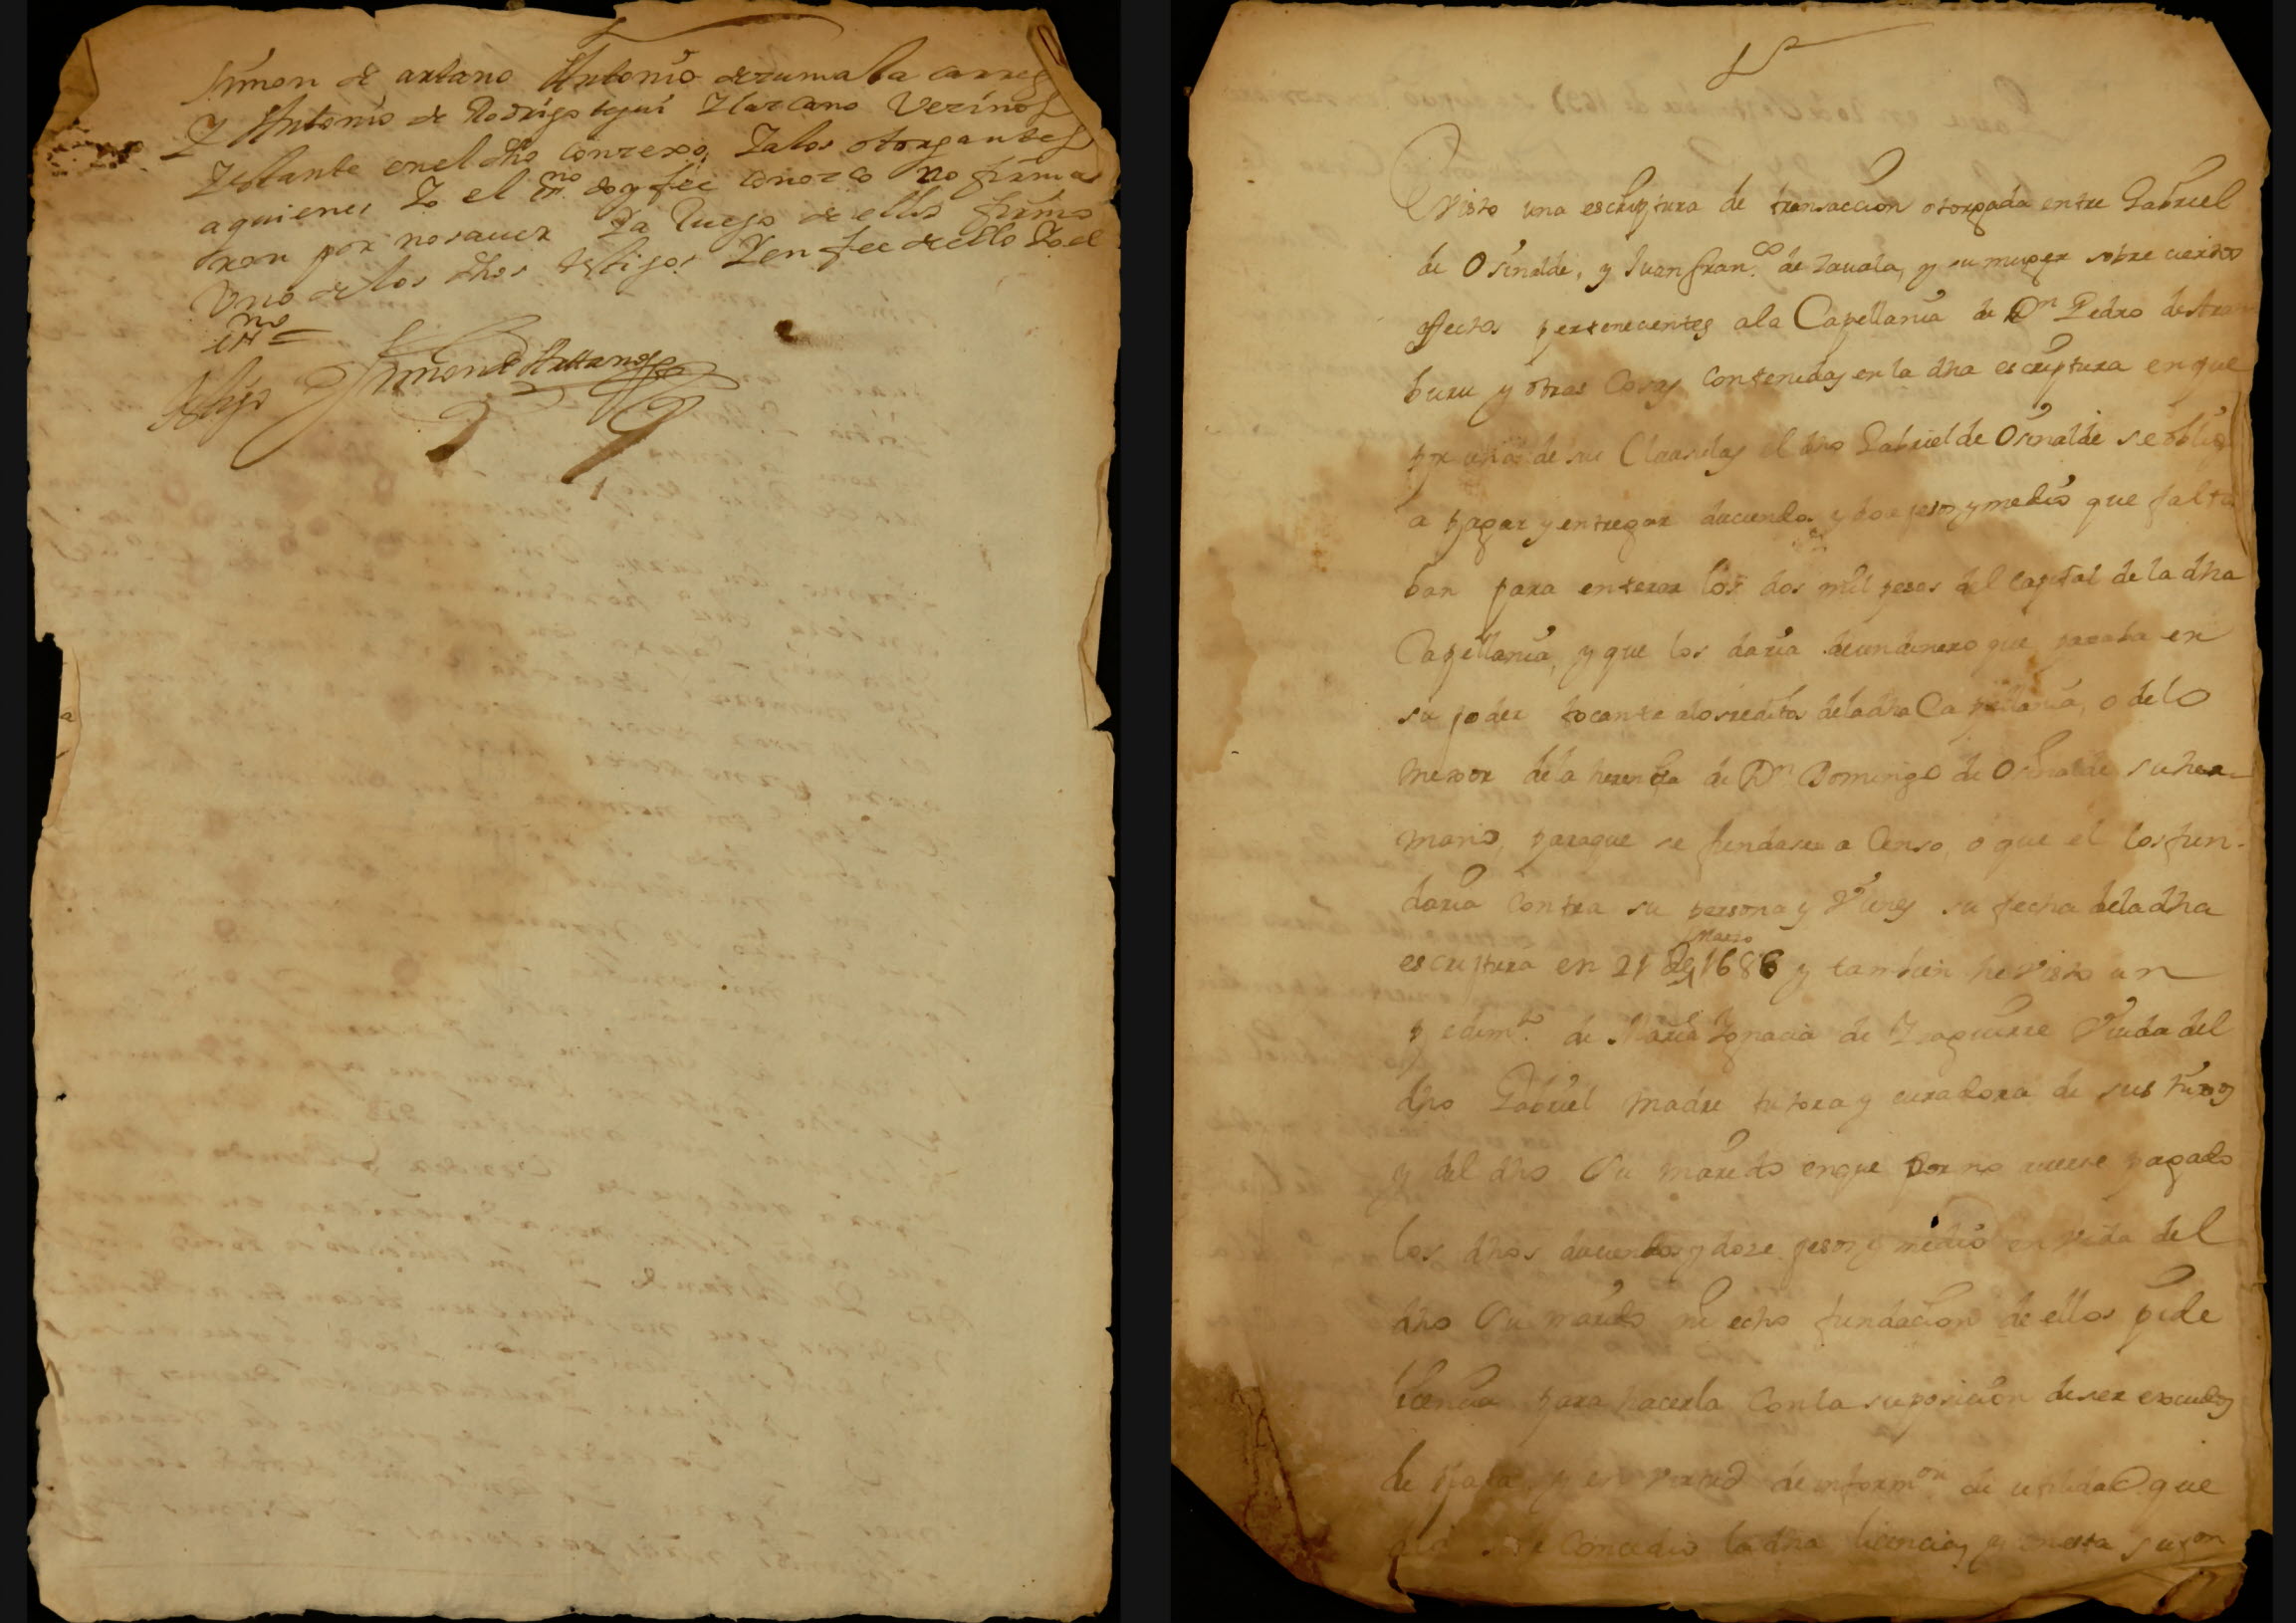 Simon de artano Antonio de zumalacarreg
Y Antonio de Rodrigotegui Ylarcano Vezinos
Y estante en el dho conzexo, Y a los otorgantes
a quienes Yo el ssno. doy fee conozco no firma
ron por no saver Y a Ruego de ellos firmo
Uno de los dhos testigos Y en fee de ello Yo el
ssno =
testigo Simon de Artano
Visto una escriptura de transaccion otorgada entre Gabriel
de Osinalde, y Juan Franco. de zauala, y su muger sobre ciertos
efectos pertenecientes a la Capellania de Dn Pedro de Aram
buru y otras Cosas contenidas en la dha escriptura en que
por una de sus Clausulas el dho Gabriel de Osinalde se oblig
a pagar y entregar ducientos y doze pesos y medio que falta
ban para enterar los dos mil pesos del capital de la dha
Capellania, y que los daria de un dinero que paraba en
su poder tocante a los reditos de la dha Capellania, o de lo
mexor de la herencia de Dn Domingo de Osinalde su her-
mano, para que se fundasen a Censo, o que el los fun-
daria contra su persona y Vienes su fecha de la dha
escriptura en 21 de Marzo 1686 y tambien he visto un
pedimto. de Maria Ygnacia de Yraguirre Viuda del
dho Gabriel madre tutora y curadora de sus hixos
y del dho Su marido en que por no averse pagado
los dhos ducientos y doze pesos y medio en vida del
dho Su marido ni echo fundacion de ellos pide
licencia para hacerla Con la suposicion de ser escudos
de plata, y en virtud de informon de utilidad que
dio se le Concedio la dha licencia, y en esta supon